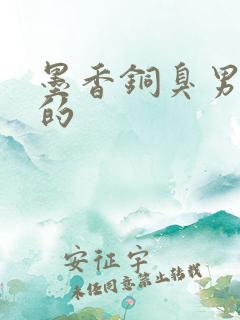 墨香銅臭男
的
安征宇
未经同意禁止转载